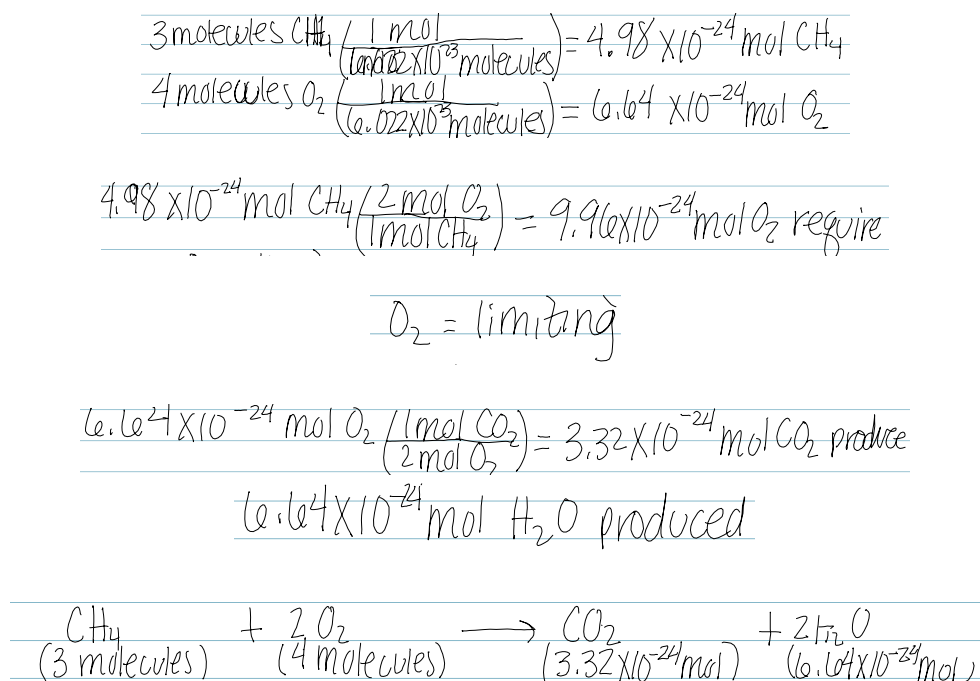 3 molecules CH4 (1 mol / 6.022X10^23 molecules) = 4.98 X10^-24 mol CH4
4 molecules O2 (1 mol / 6.022X10^23 molecules) = 6.64 X10^-24 mol O2
4.98 X10^-24 mol CH4 (2 mol O2 / 1 mol CH4) = 9.96X10^-24 mol O2 require
O2 = limiting
6.64X10^-24 mol O2 (1 mol CO2 / 2 mol O2) = 3.32X10^-24 mol CO2 produce
6.64X10^-24 mol H2O produced
CH4 + 2 O2 → CO2 + 2H2O
(3 molecules) (4 molecules) (3.32X10^-24 mol) (6.64X10^-24 mol)